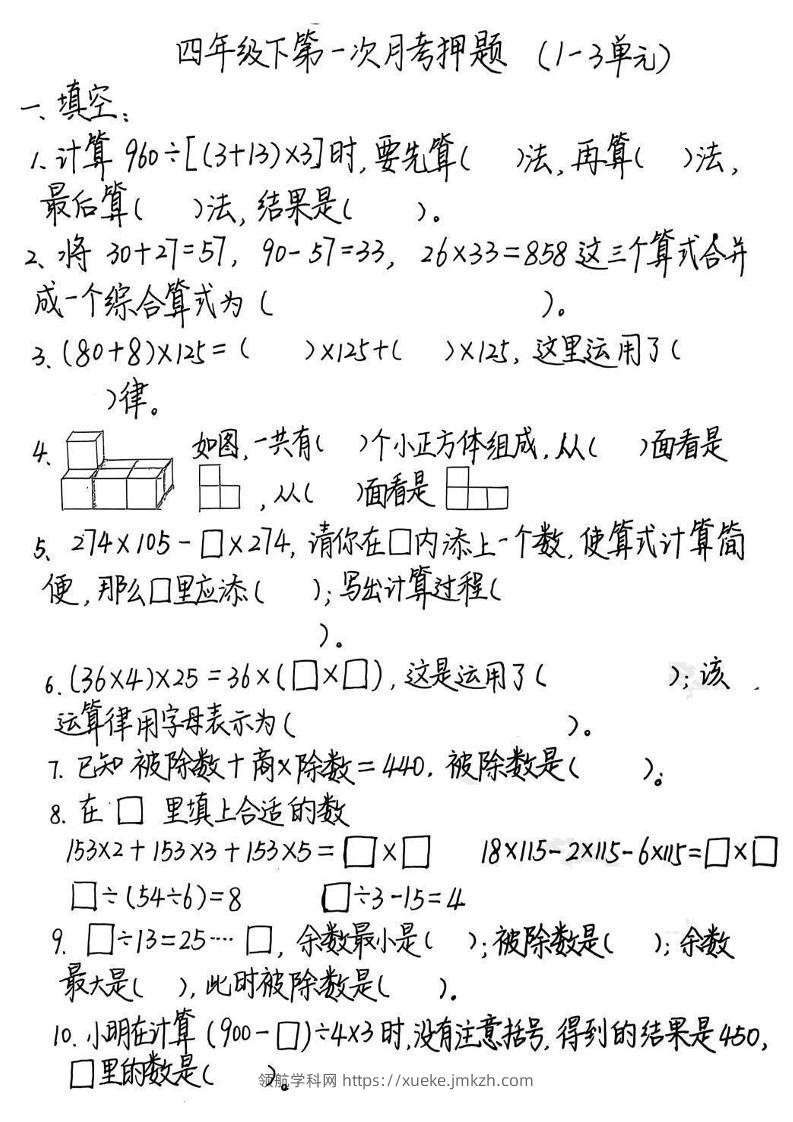 四年级下第一次月考押题（1-3单元）
一、填空：
1、计算 960÷[(3+13)×3]时,要先算(  )法,再算(  )法,
最后算(  )法,结果是(  )。
2、将 30+27=57, 90-57=33, 26×33=858 这三个算式合并
成一个综合算式为(  )。
3、(80+8)×125=(  )×125+(  )×125, 这里运用了(
)律。
4、 如图,一共有(  )个小正方体组成,从(  )面看是
,从(  )面看是
5、274×105-□×274,请你在□内添上一个数,使算式计算简
便,那么□里应添(  );写出计算过程(
)。
6.(36×4)×25=36×(□×□),这是运用了(  );该
运算律用字母表示为(  )。
7. 已知 被除数+商×除数=440, 被除数是(  )。
8. 在 □ 里填上合适的数
153×2+153×3+153×5=□×□ 18×115-2×115-6×115=□×□
□÷(54÷6)=8 □÷3-15=4
9. □÷13=25····□, 余数最小是(  );被除数是(  );余数
最大是(  ),此时被除数是(  )。
10.小明在计算(900-□)÷4×3时,没有注意括号,得到的结果是450,
□里的数是(  )。
领航学科网 https://xueke.jmkzh.com